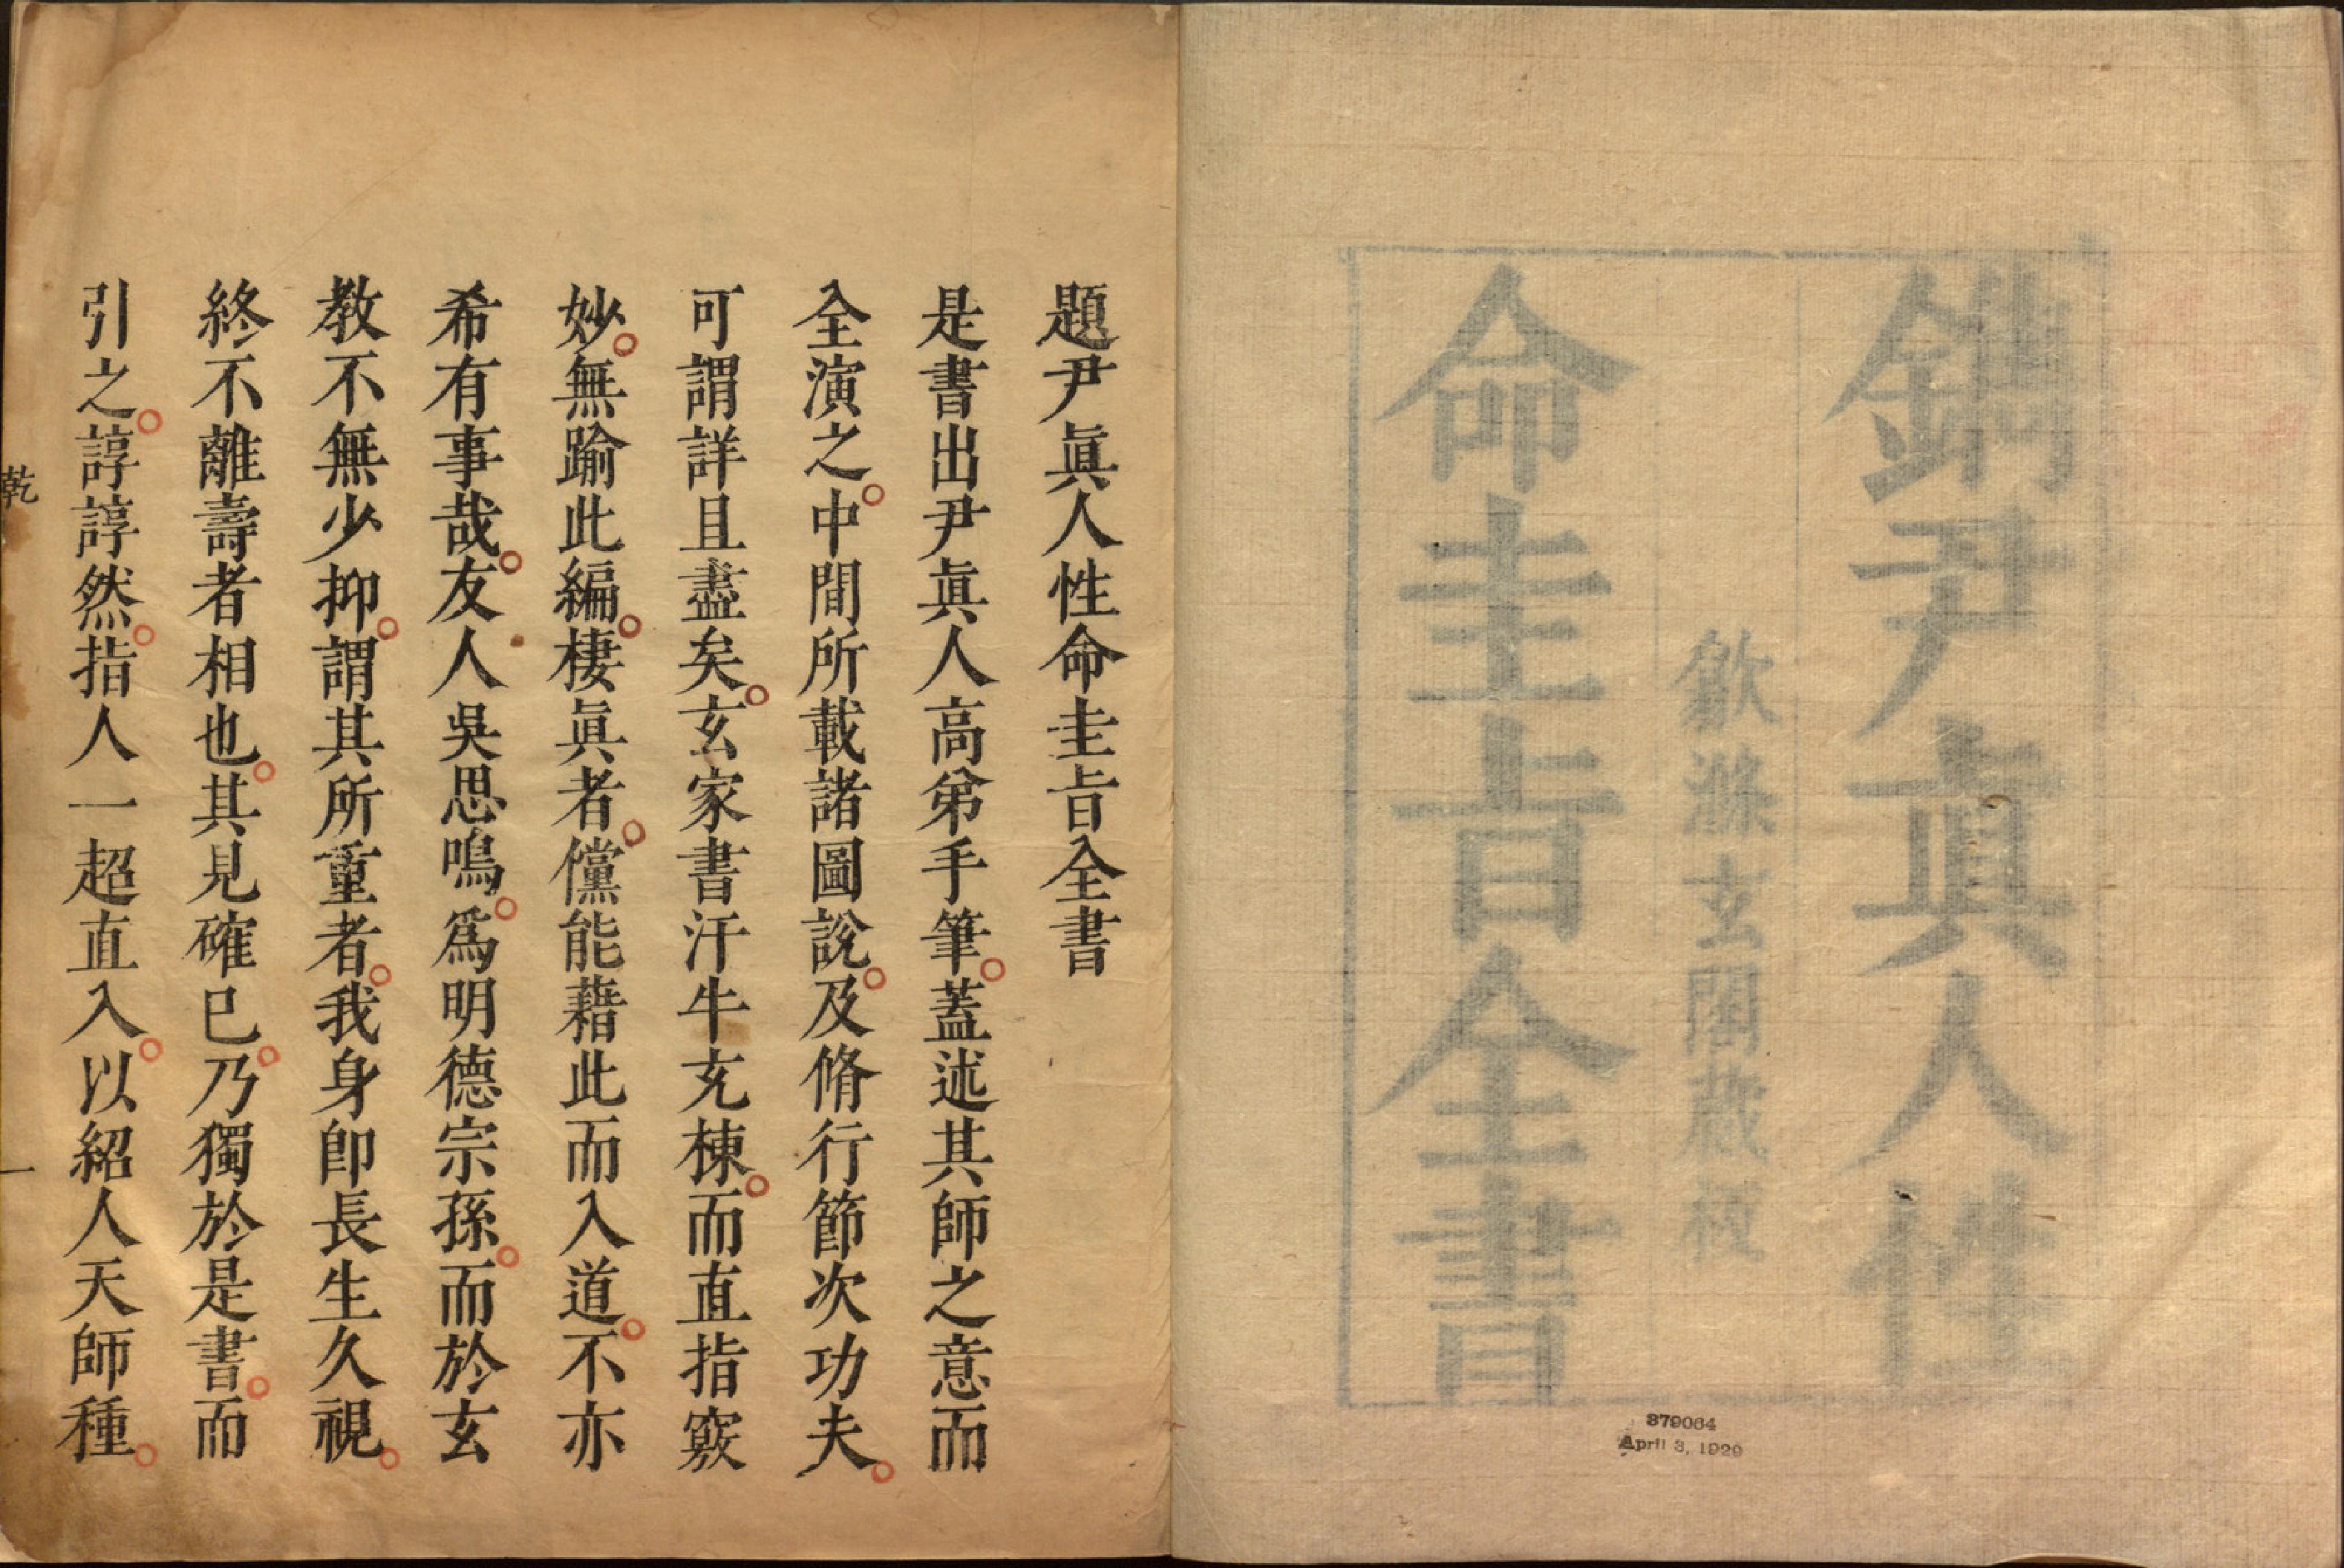 鐫尹眞人性
歙滌玄閣藏板
命圭旨全書
379064
April 3, 1929
題尹眞人性命圭旨全書
是書出尹眞人高弟手筆。蓋述其師之意而
全演之。中間所載諸圖說。及脩行節次功夫。
可謂詳且盡矣。玄家書汗牛充棟。而直指竅
妙。無踰此編。棲眞者。儻能藉此而入道。不亦
希有事哉。友人吳思鳴。爲明德宗孫。而於玄
教不無少抑。謂其所重者。我身卽長生久視。
終不離壽者相也。其見確巳。乃獨於是書。而
引之。諄諄然。指人一超直入。以紹人天師種。
乾
一